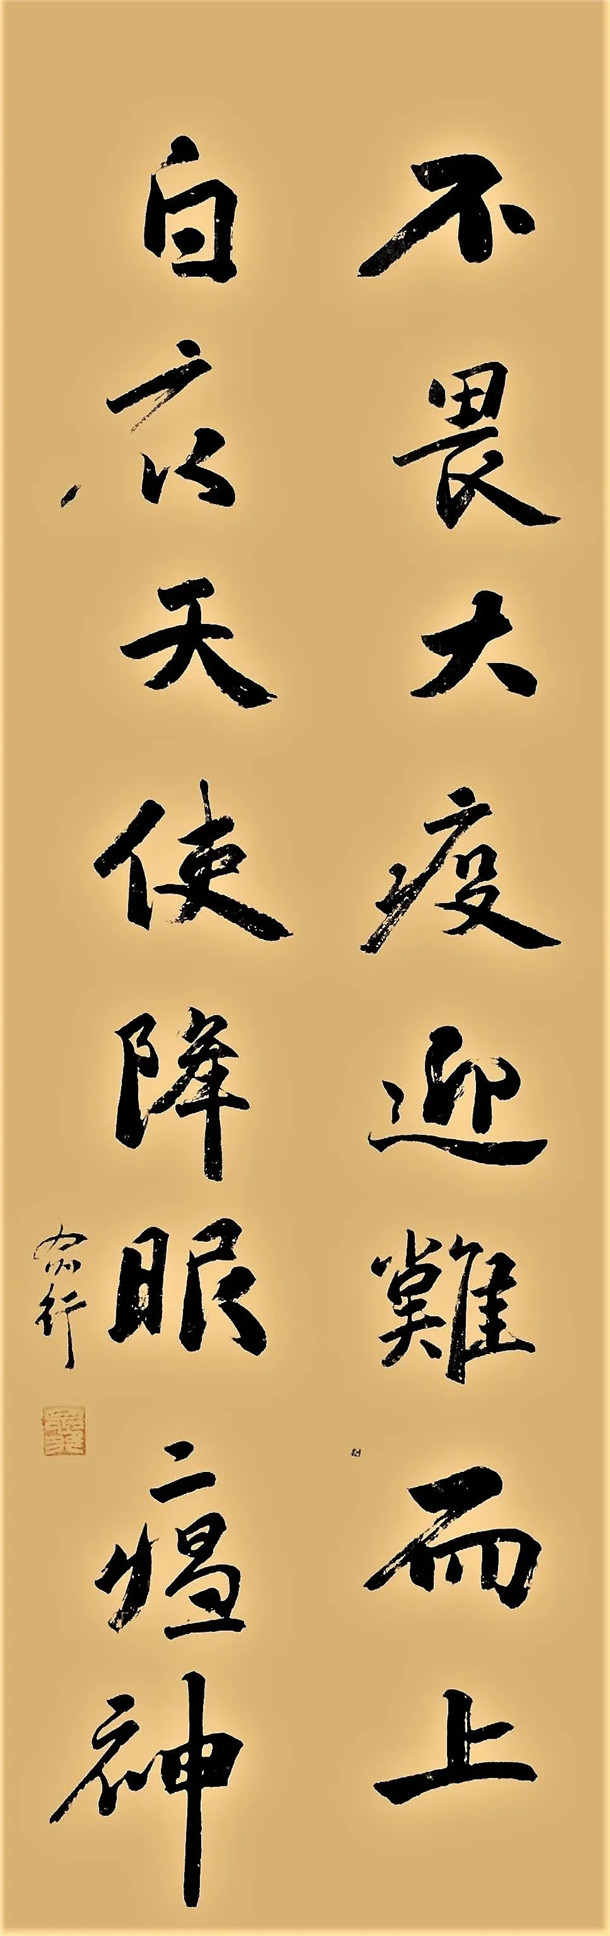 不畏大疫迎難而上
白衣天使降服瘟神
行